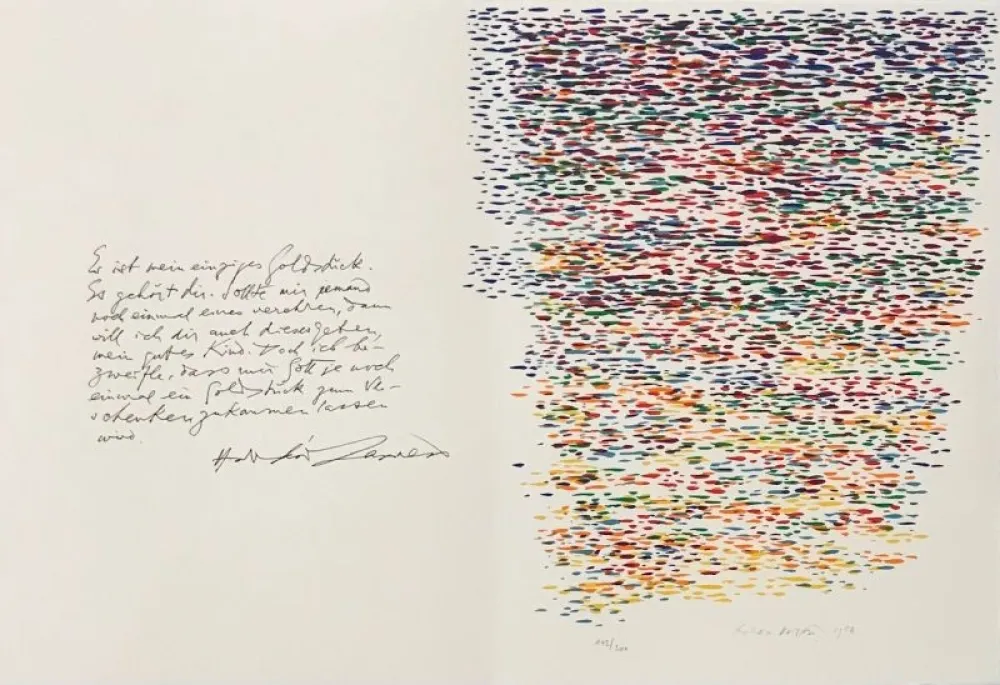 Er ist mein einziges Goldstück.
Es gehört dir. Sollte mir jemand
noch einmal eines verehren, dann
will ich dir auch dieses geben,
mein gutes Kind. Doch ich be-
zweifle, dass mir Gott je noch
einmal ein Goldstück zum Ve-
schenken zukommen lassen
wird.